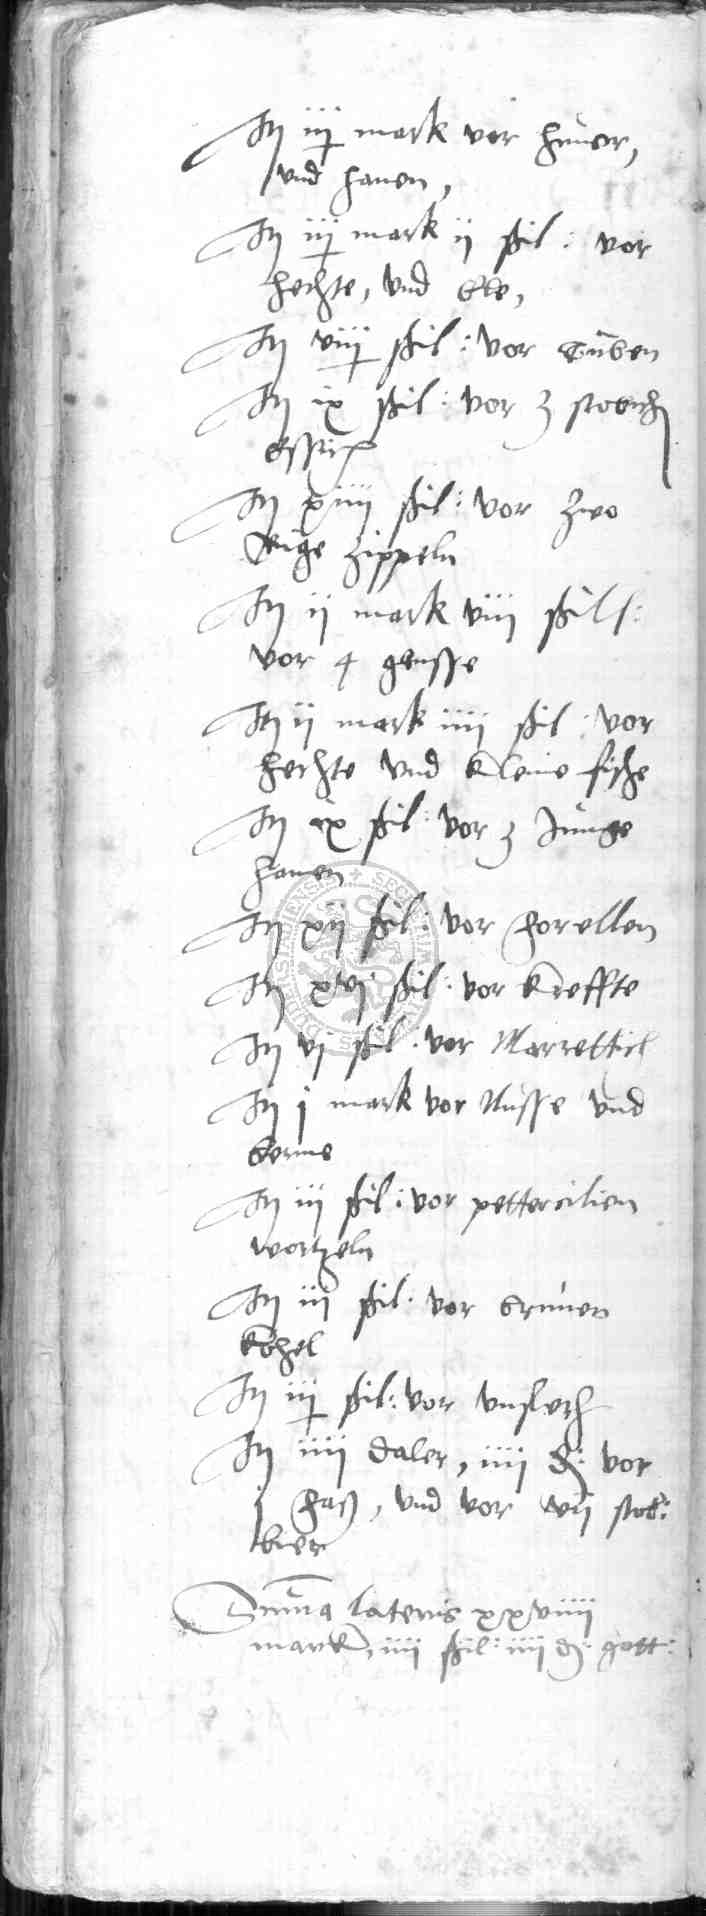 It iij mark vor huner,
vnd hanen,
It iij mark ij ßil: vor
hechte, vnd Ele,
It viij ßil: vor Tuben
It ix ßil: vor 3 stobich
Essich
It xiiij ßil: vor zwo
Rige zippeln
It ij mark viij ßill:
vor 4 gensse
It ij mark iiij ßil: vor
hechte vnd Kleine fische
It ix ßil: vor 3 Junge
hanen
It xij ßil: vor Forellen
It xvj ßil: vor Kreffte
It vj ßil: vor Marrettich
It j mark vor Nusse vnd
berme
It iij ßil: vor pettercilien
wortzeln
It iij ßil: vor brunen
Kohel
It iij ßil: vor vnslich
It iiij daler, iiij d: vor
j Faß, vnd vor vij stob:
bier
Summa lateris xxviiij
mark, iiij ßil: iiij d: gott: